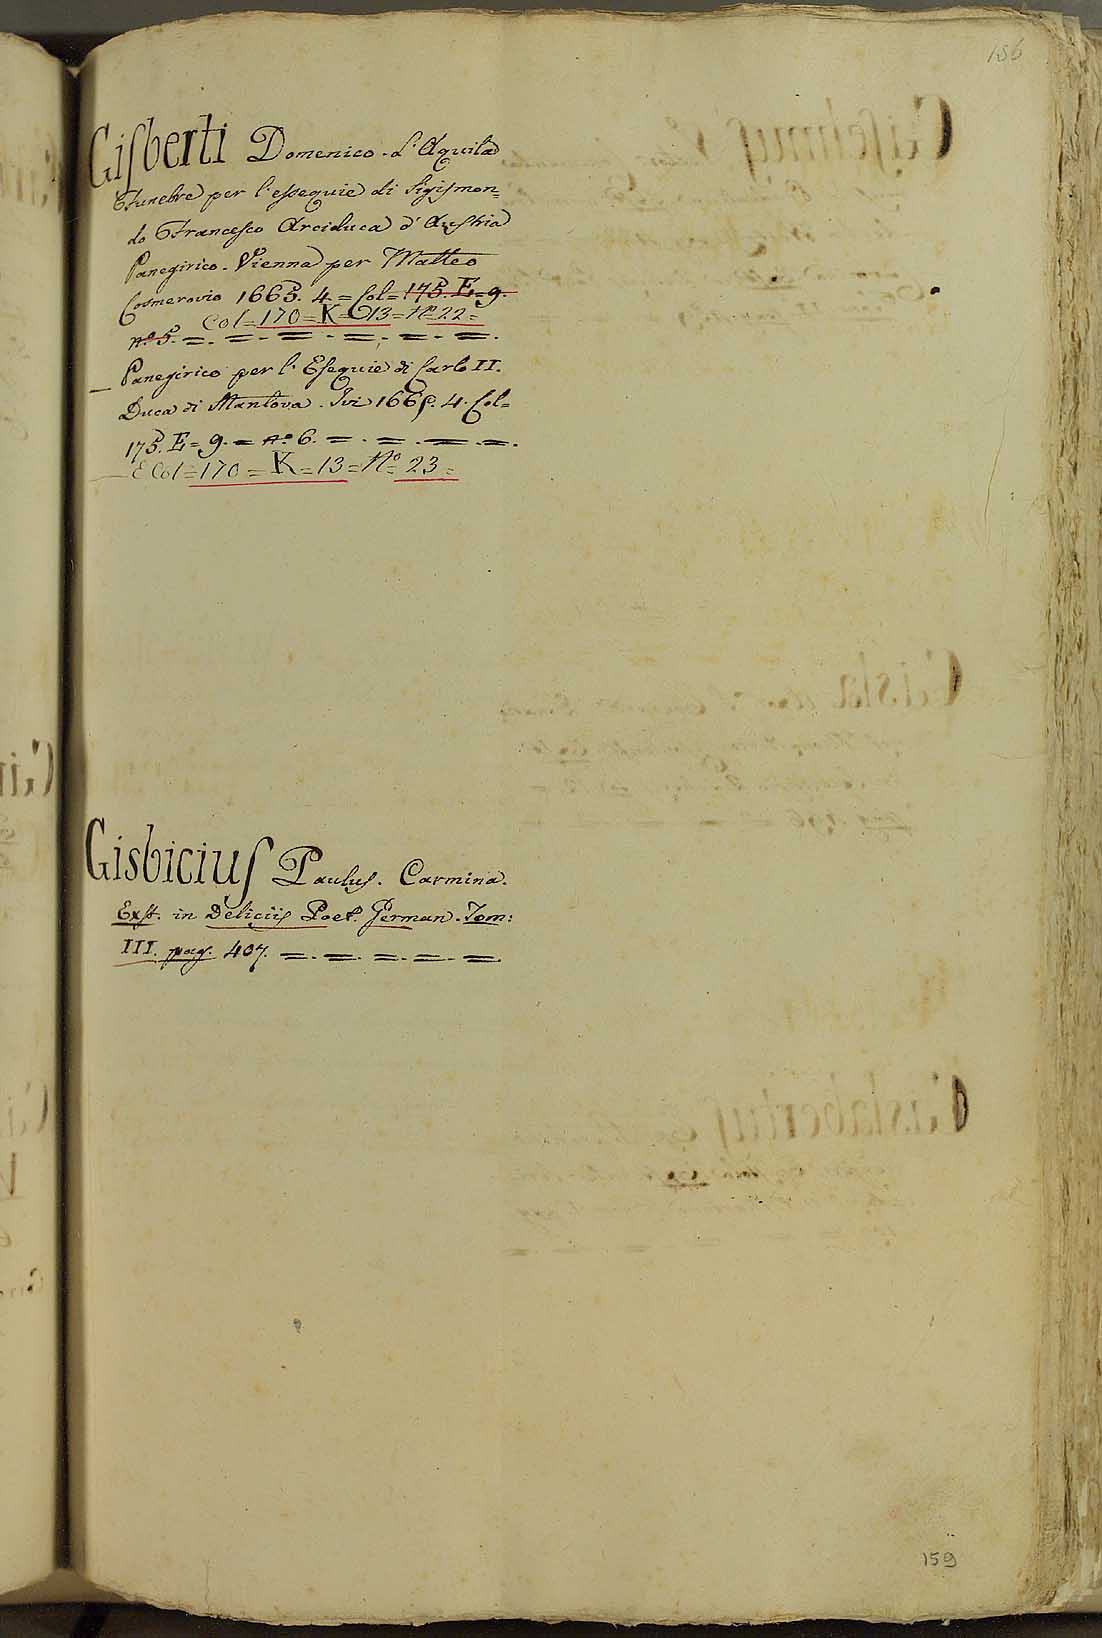 156
Gisberti Domenico. L'Aquila
Funebre per l'essequie di Sigismon=
do Francesco Arciduca d'Austria
Panegirico. Vienna per Matteo
Cosmerovio 1665. 4. = Col= 175. E=9.
Col= 170= K= 13= N.º 22=
n.º 5. =. =. =. =. =. =.
Panegirico per l'Esequie di Carlo II.
Duca di Mantova. Ivi 1665. 4. Col=
175. E= 9. = n.º 6. =. =. =. =.
E Col= 170= K= 13= N.º 23=
Gisbicius Paulus. Carmina.
Exst. in Deliciis Poet. German. Tom:
III. pag. 407. =. =. =. =. =.
159